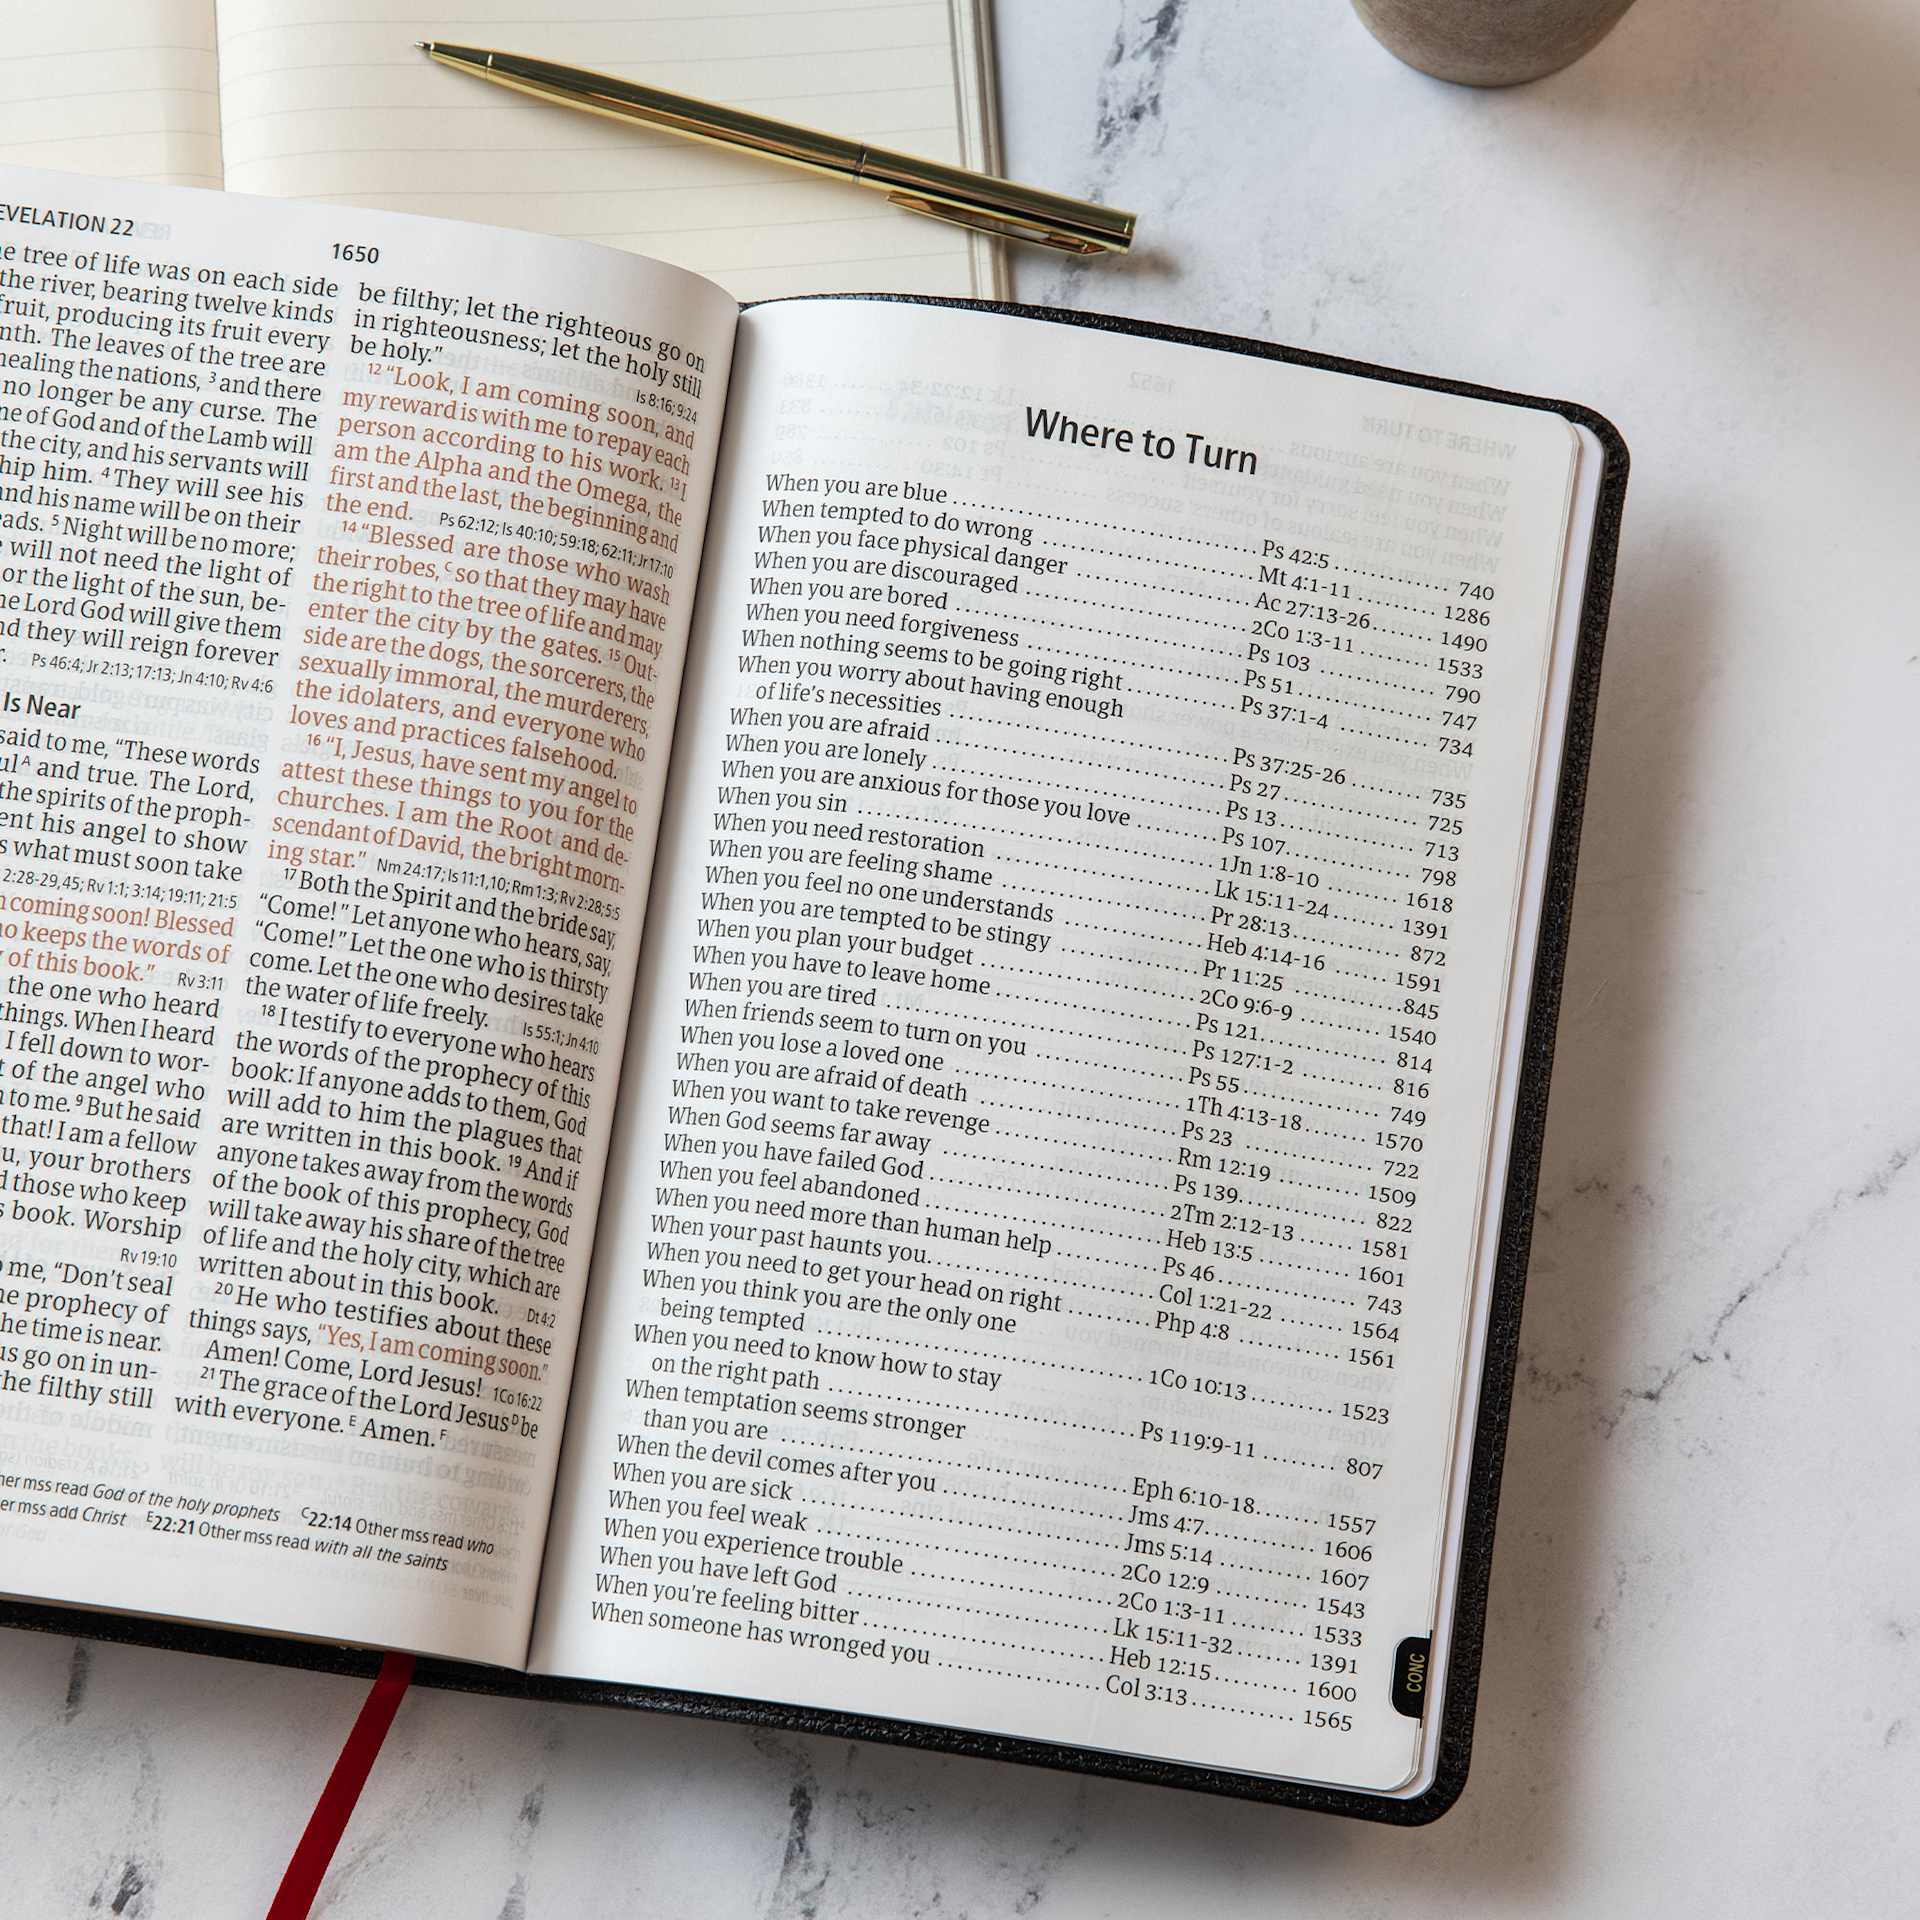 EVELATION 22
1650
e tree of life was on each side
the river, bearing twelve kinds
fruit, producing its fruit every
nth. The leaves of the tree are
healing the nations, ³ and there
no longer be any curse. The
ne of God and of the Lamb will
the city, and his servants will
hip him. ⁴ They will see his
and his name will be on their
eads. ⁵ Night will be no more;
will not need the light of
or the light of the sun, be-
he Lord God will give them
nd they will reign forever
r. Ps 46:4; Jr 2:13; 17:13; Jn 4:10; Rv 4:6
Is Near
said to me, “These words
ul ᴬ and true. The Lord,
the spirits of the proph-
ent his angel to show
s what must soon take
2:28-29,45; Rv 1:1; 3:14; 19:11; 21:5
coming soon! Blessed
ho keeps the words of
of this book.” Rv 3:11
the one who heard
things. When I heard
I fell down to wor-
t of the angel who
to me. ⁹ But he said
that! I am a fellow
u, your brothers
d those who keep
s book. Worship
Rv 19:10
o me, “Don’t seal
he prophecy of
he time is near.
us go on in un-
he filthy still
be filthy; let the righteous go on
in righteousness; let the holy still
be holy.” Is 8:16; 9:24
¹² “Look, I am coming soon, and
my reward is with me to repay each
person according to his work. ¹³ I
am the Alpha and the Omega, the
first and the last, the beginning and
the end. Ps 62:12; Is 40:10; 59:18; 62:11; Jr 17:10
¹⁴ “Blessed are those who wash
their robes, ᶜ so that they may have
the right to the tree of life and may
enter the city by the gates. ¹⁵ Out-
side are the dogs, the sorcerers, the
sexually immoral, the murderers,
the idolaters, and everyone who
loves and practices falsehood.
¹⁶ “I, Jesus, have sent my angel to
attest these things to you for the
churches. I am the Root and de-
scendant of David, the bright morn-
ing star.” Nm 24:17; Is 11:1,10; Rm 1:3; Rv 2:28; 5:5
¹⁷ Both the Spirit and the bride say,
“Come!” Let anyone who hears, say,
“Come!” Let the one who is thirsty
come. Let the one who desires take
the water of life freely. Is 55:1; Jn 4:10
¹⁸ I testify to everyone who hears
the words of the prophecy of this
book: If anyone adds to them, God
will add to him the plagues that
are written in this book. ¹⁹ And if
anyone takes away from the words
of the book of this prophecy, God
will take away his share of the tree
of life and the holy city, which are
written about in this book. Dt 4:2
²⁰ He who testifies about these
things says, “Yes, I am coming soon.”
Amen! Come, Lord Jesus! 1Co 16:22
²¹ The grace of the Lord Jesus ᴰ be
with everyone. ᴱ Amen. ꟳ
her mss read God of the holy prophets ᶜ22:14 Other mss read who
er mss add Christ ᴱ22:21 Other mss read with all the saints
Where to Turn
When you are blue ........ Ps 42:5 ........ 740
When tempted to do wrong ........ Mt 4:1-11 ........ 1286
When you face physical danger ........ Ac 27:13-26 ........ 1490
When you are discouraged ........ 2Co 1:3-11 ........ 1533
When you are bored ........ Ps 103 ........ 790
When you need forgiveness ........ Ps 51 ........ 747
When nothing seems to be going right ........ Ps 37:1-4 ........ 734
When you worry about having enough
of life’s necessities ........ Ps 37:25-26 ........ 735
When you are afraid ........ Ps 27 ........ 725
When you are lonely ........ Ps 13 ........ 713
When you are anxious for those you love ........ Ps 107 ........ 798
When you sin ........ 1Jn 1:8-10 ........ 1618
When you need restoration ........ Lk 15:11-24 ........ 1391
When you are feeling shame ........ Pr 28:13 ........ 872
When you feel no one understands ........ Heb 4:14-16 ........ 1591
When you are tempted to be stingy ........ Pr 11:25 ........ 845
When you plan your budget ........ 2Co 9:6-9 ........ 1540
When you have to leave home ........ Ps 121 ........ 814
When you are tired ........ Ps 127:1-2 ........ 816
When friends seem to turn on you ........ Ps 55 ........ 749
When you lose a loved one ........ 1Th 4:13-18 ........ 1570
When you are afraid of death ........ Ps 23 ........ 722
When you want to take revenge ........ Rm 12:19 ........ 1509
When God seems far away ........ Ps 139 ........ 822
When you have failed God ........ 2Tm 2:12-13 ........ 1581
When you feel abandoned ........ Heb 13:5 ........ 1601
When you need more than human help ........ Ps 46 ........ 743
When your past haunts you ........ Col 1:21-22 ........ 1564
When you need to get your head on right ........ Php 4:8 ........ 1561
When you think you are the only one
being tempted ........ 1Co 10:13 ........ 1523
When you need to know how to stay
on the right path ........ Ps 119:9-11 ........ 807
When temptation seems stronger
than you are ........ Eph 6:10-18 ........ 1557
When the devil comes after you ........ Jms 4:7 ........ 1606
When you are sick ........ Jms 5:14 ........ 1607
When you feel weak ........ 2Co 12:9 ........ 1543
When you experience trouble ........ 2Co 1:3-11 ........ 1533
When you have left God ........ Lk 15:11-32 ........ 1391
When you’re feeling bitter ........ Heb 12:15 ........ 1600
When someone has wronged you ........ Col 3:13 ........ 1565
CONC